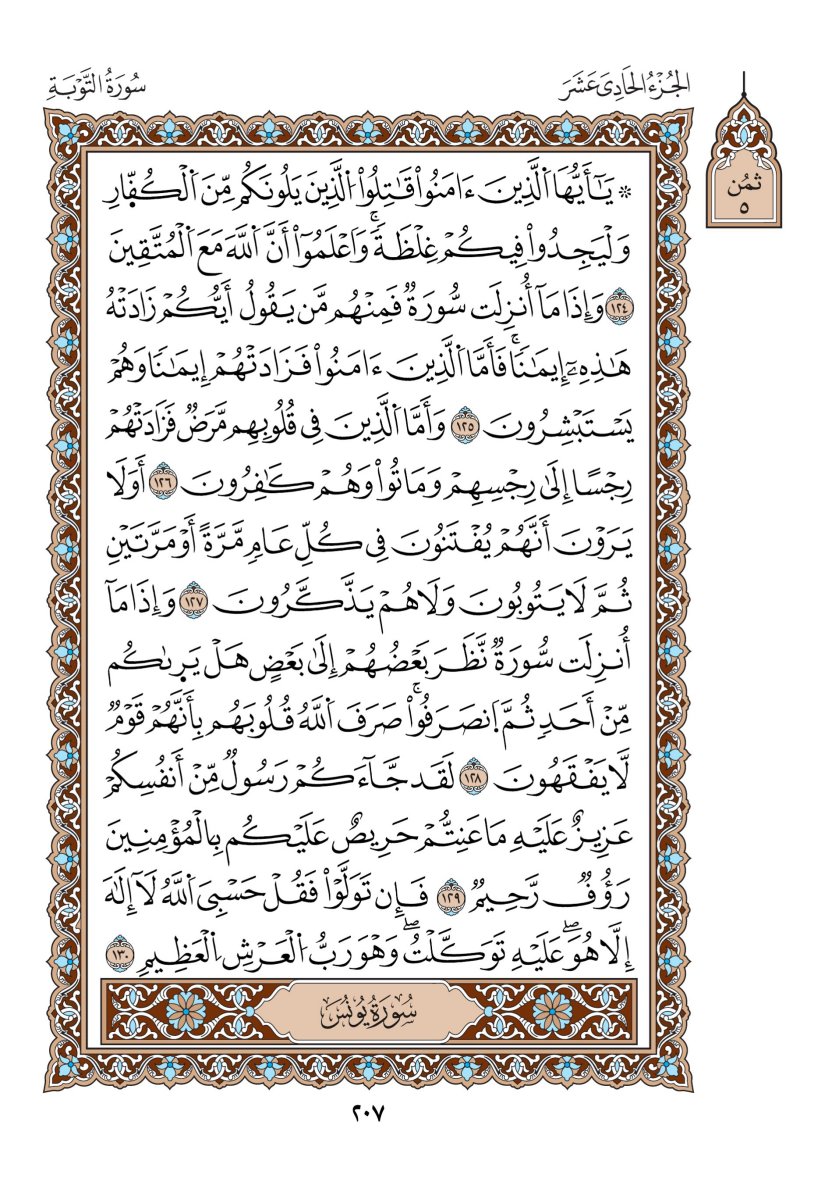 الجُزْءُ الحَادِي عَشَرَ
سُورَةُ التَّوْبَةِ
ثُمُن
٥
۞ يَٰٓأَيُّهَا اَ۬لذِينَ ءَامَنُواْ قَٰتِلُواْ اُ۬لذِينَ يَلُونَكُم مِّنَ اَ۬لْكُفّ۪ارِ
وَلْيَجِدُواْ فِيكُمْ غِلْظَةٗۖ وَاعْلَمُوٓاْ أَنَّ اَ۬للَّهَ مَعَ اَ۬لْمُتَّقِينَ
١٢٤ وَإِذَا مَآ أُنزِلَت سُّورَةٞ فَمِنْهُم مَّن يَقُولُ أَيُّكُمْ زَادَتْهُ
هَٰذِهِۦٓ إِيمَٰنٗاۖ فَأَمَّا اَ۬لذِينَ ءَامَنُواْ فَزَادَتْهُمْ إِيمَٰنٗا وَهُمْ
يَسْتَبْشِرُونَ ١٢٥ وَأَمَّا اَ۬لذِينَ فِي قُلُوبِهِم مَّرَضٞ فَزَادَتْهُمْ
رِجْسًا إِلَىٰ رِجْسِهِمْ وَمَاتُواْ وَهُمْ كَٰفِرُونَ ١٢٦ أَوَلَا
يَرَوْنَ أَنَّهُمْ يُفْتَنُونَ فِي كُلِّ عَامٖ مَّرَّةً أَوْ مَرَّتَيْنِ
ثُمَّ لَا يَتُوبُونَ وَلَا هُمْ يَذَّكَّرُونَ ١٢٧ وَإِذَا مَآ
أُنزِلَت سُّورَةٞ نَّظَرَ بَعْضُهُمْ إِلَىٰ بَعْضٍ هَلْ يَر۪ىٰكُم
مِّنْ أَحَدٖ ثُمَّ اَ۪نصَرَفُواْۖ صَرَفَ اَ۬للَّهُ قُلُوبَهُم بِأَنَّهُمْ قَوْمٞ
لَّا يَفْقَهُونَ ١٢٨ لَقَد جَّآءَكُمْ رَسُولٞ مِّنْ أَنفُسِكُمْ
عَزِيزٌ عَلَيْهِ مَا عَنِتُّمْ حَرِيصٌ عَلَيْكُم بِالْمُؤْمِنِينَ
رَؤُفٞ رَّحِيمٞ ١٢٩ فَإِن تَوَلَّوْاْ فَقُلْ حَسْبِيَ اَ۬للَّهُ لَآ إِلَٰهَ
إِلَّا هُوَۖ عَلَيْهِ تَوَكَّلْتُۖ وَهْوَ رَبُّ اُ۬لْعَرْشِ اِ۬لْعَظِيمِ ١٣٠
سُورَةُ يُونُسَ
٢٠٧